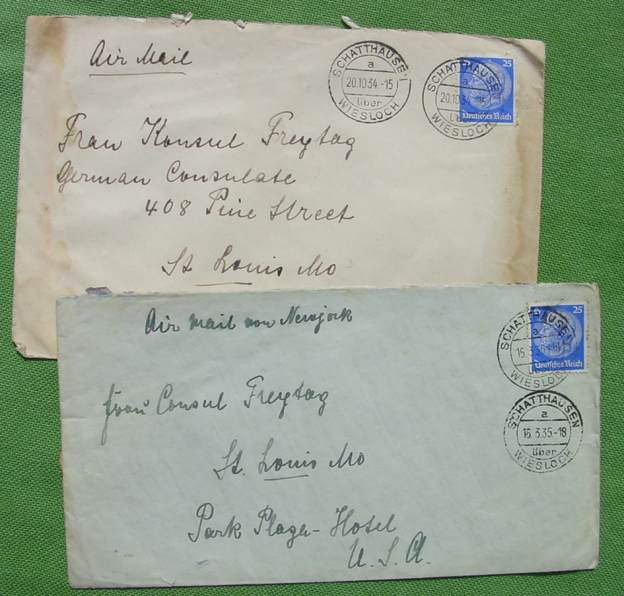 Air Mail
SCHATTHAUSEN
a
20.10.34.-15
über
WIESLOCH
SCHATTHAUSEN
a
20.10.34.
WIESLOCH
25
Deutsches Reich
Frau Konsul Freytag
German Consulate
408 Pine Street
St Louis Mo
Air mail von Newjork
SCHATTHAUSEN
WIESLOCH
25
Deutsches Reich
SCHATTHAUSEN
a
16.3.35.-18
über
WIESLOCH
Frau Consul Freytag
St. Louis Mo
Park Plaza-Hotel
U.S.A.